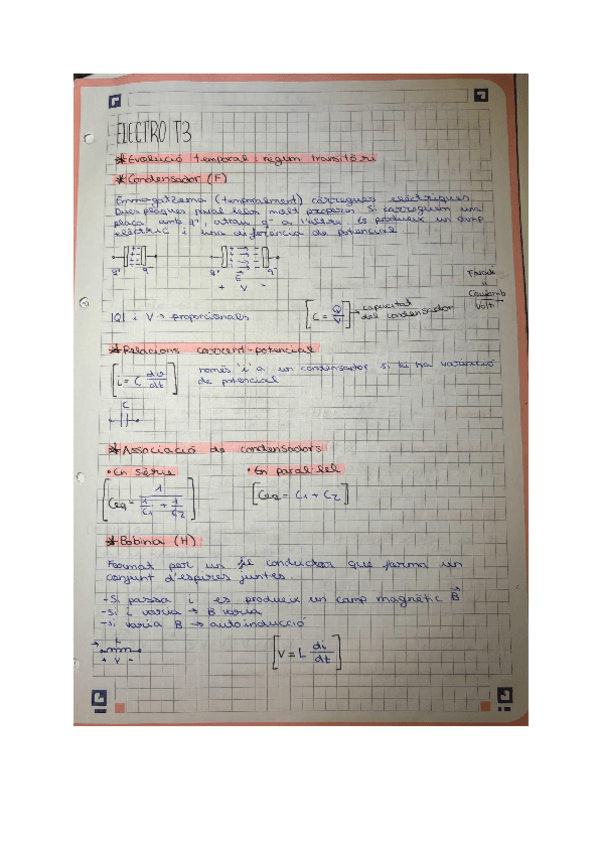 ELECTRO T3
*Evolució temporal: règim transitòri
*Condensador (F)
Emmagatzema (temporalment) càrregues elèctriques
Dues plaques paral·leles molt properes. Si carreguem una
placa amb q+, atrau q- a l'altra. Es produeix un camp
elèctric i una diferència de potencial
q+ q- q+ E q-
+ V -
Farad
=
Coulomb
Volt
|Q| i V → proporcionals
[C = Q/V] → capacitat
del condensador
*Relacions corrent-potencial
[i = C dv/dt] només i a un condensador si hi ha variació
de potencial
C
*Associació de condensadors
• En sèrie
• En paral·lel
[Ceq = 1 / (1/C1 + 1/C2)]
[Ceq = C1 + C2]
*Bobina (H)
Format per un fil conductor que forma un
conjunt d'espires juntes.
-Si passa i es produeix un camp magnètic B
-Si i varia → B varia
-Si varia B → autoinducció
L
+ V -
[V = L di/dt]